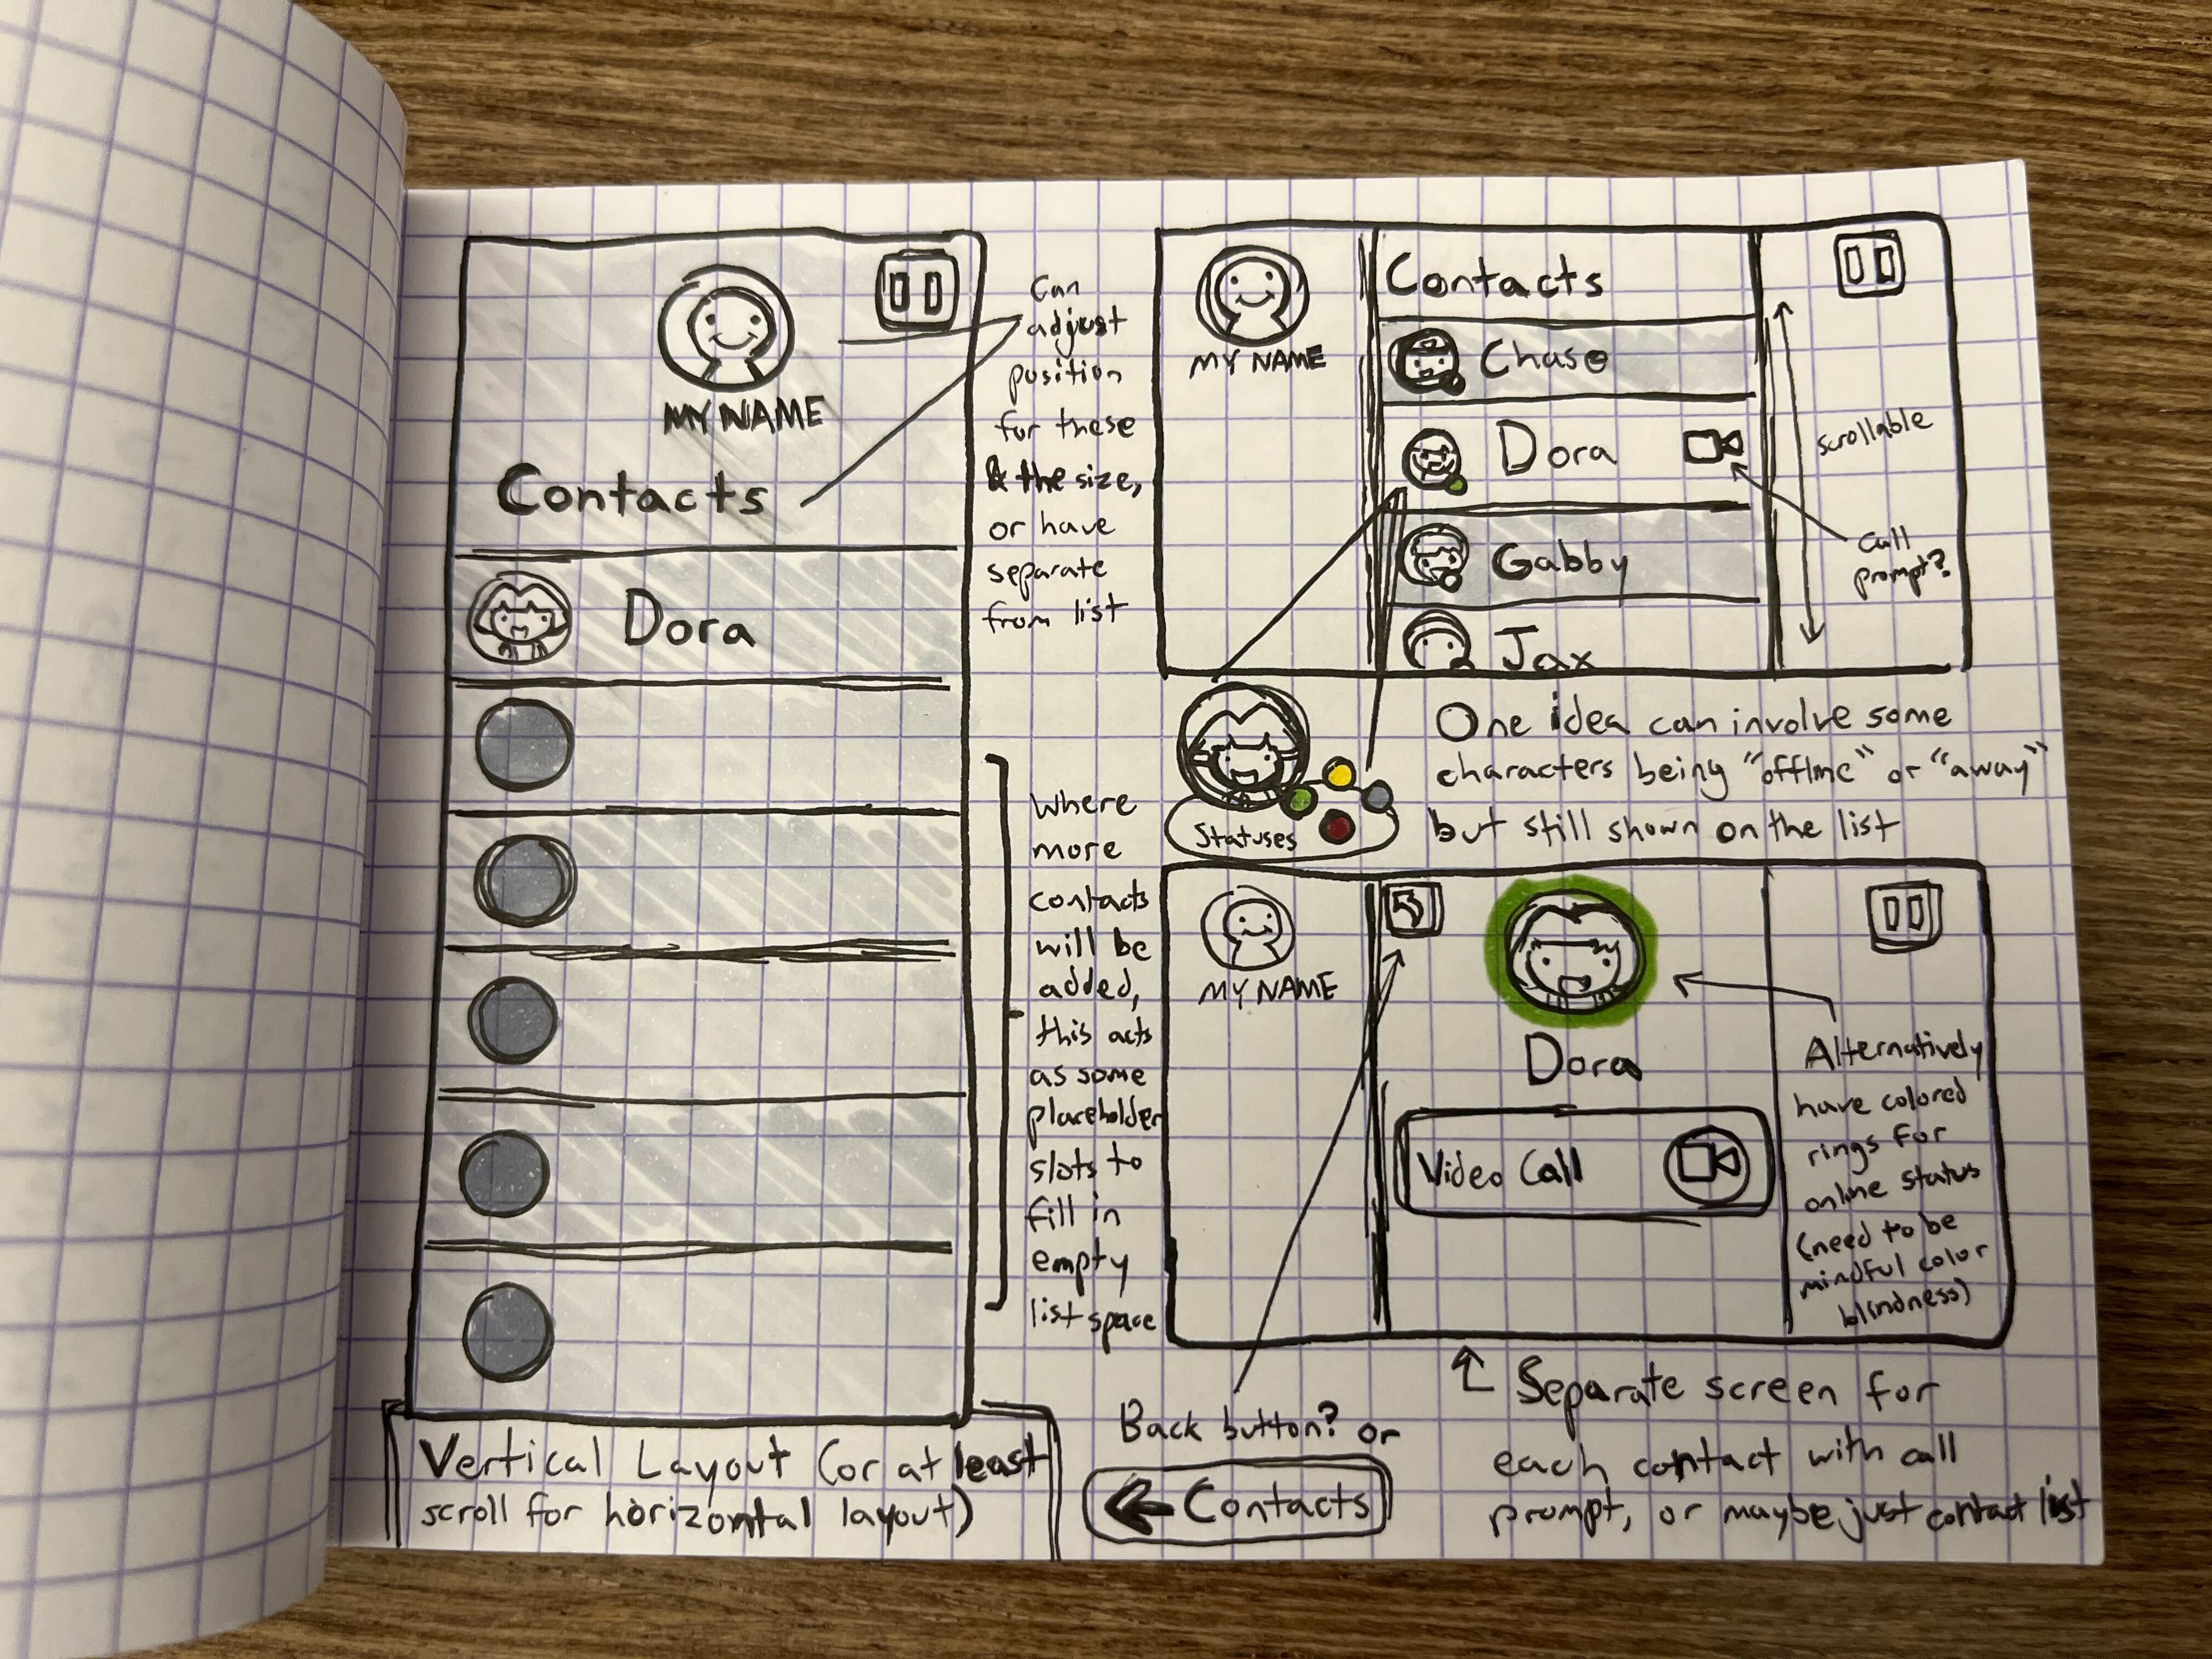 MY NAME
Contacts
Dora
Can
adjust
position
for these
& the size,
or have
separate
from list
Where
more
contacts
will be
added,
this acts
as some
placeholder
slots to
fill in
empty
list space
Vertical Layout (or at least
scroll for horizontal layout)
MY NAME
Contacts
Chase
Dora
Gabby
Jax
scrollable
Call
prompt?
Statuses
One idea can involve some
characters being "offline" or "away"
but still shown on the list
MY NAME
Dora
Video Call
Alternatively
have colored
rings for
online status
(need to be
mindful color
blindness)
Back button? or
Contacts
Separate screen for
each contact with call
prompt, or maybe just contact list